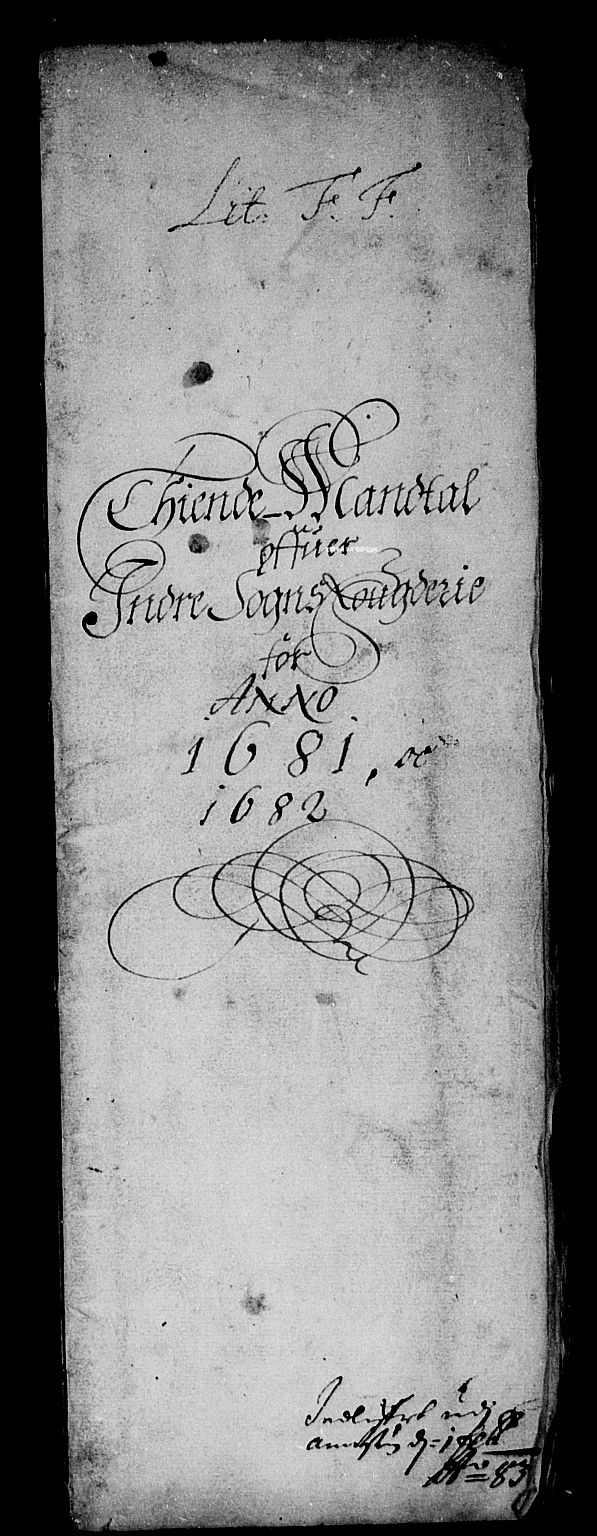 Lit. F. F.
Thiende-Mandtal
offuer
Indre Sogns Fougderie
för
ANNO
1681, oc
1682
Indlefert udj
Ao = 83